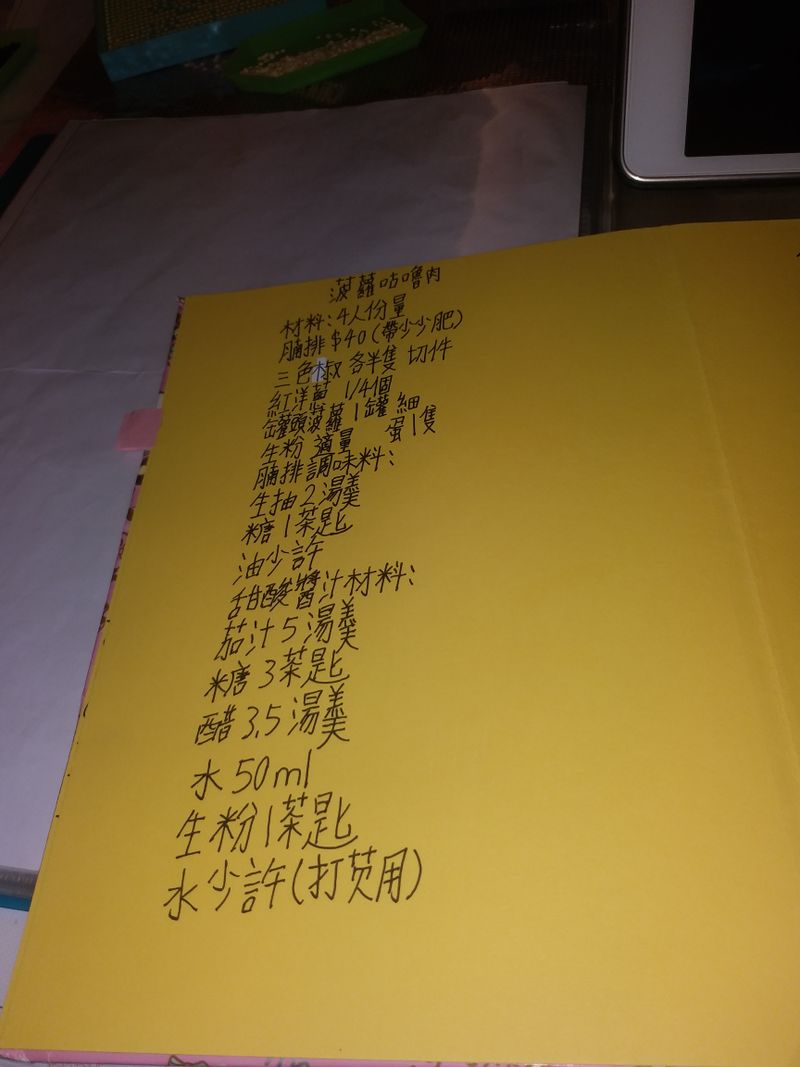 菠蘿咕嚕肉
材料：4人份量
腩排$40(帶少少肥)
三色椒 各半隻 切件
紅洋葱 1/4個
罐頭菠蘿1罐 細
生粉 適量 蛋1隻
腩排調味料：
生抽2湯羹
糖1茶匙
油少許
甜酸醬汁材料：
茄汁5湯羹
糖3茶匙
醋3.5湯羹
水50ml
生粉1茶匙
水少許(打芡用)